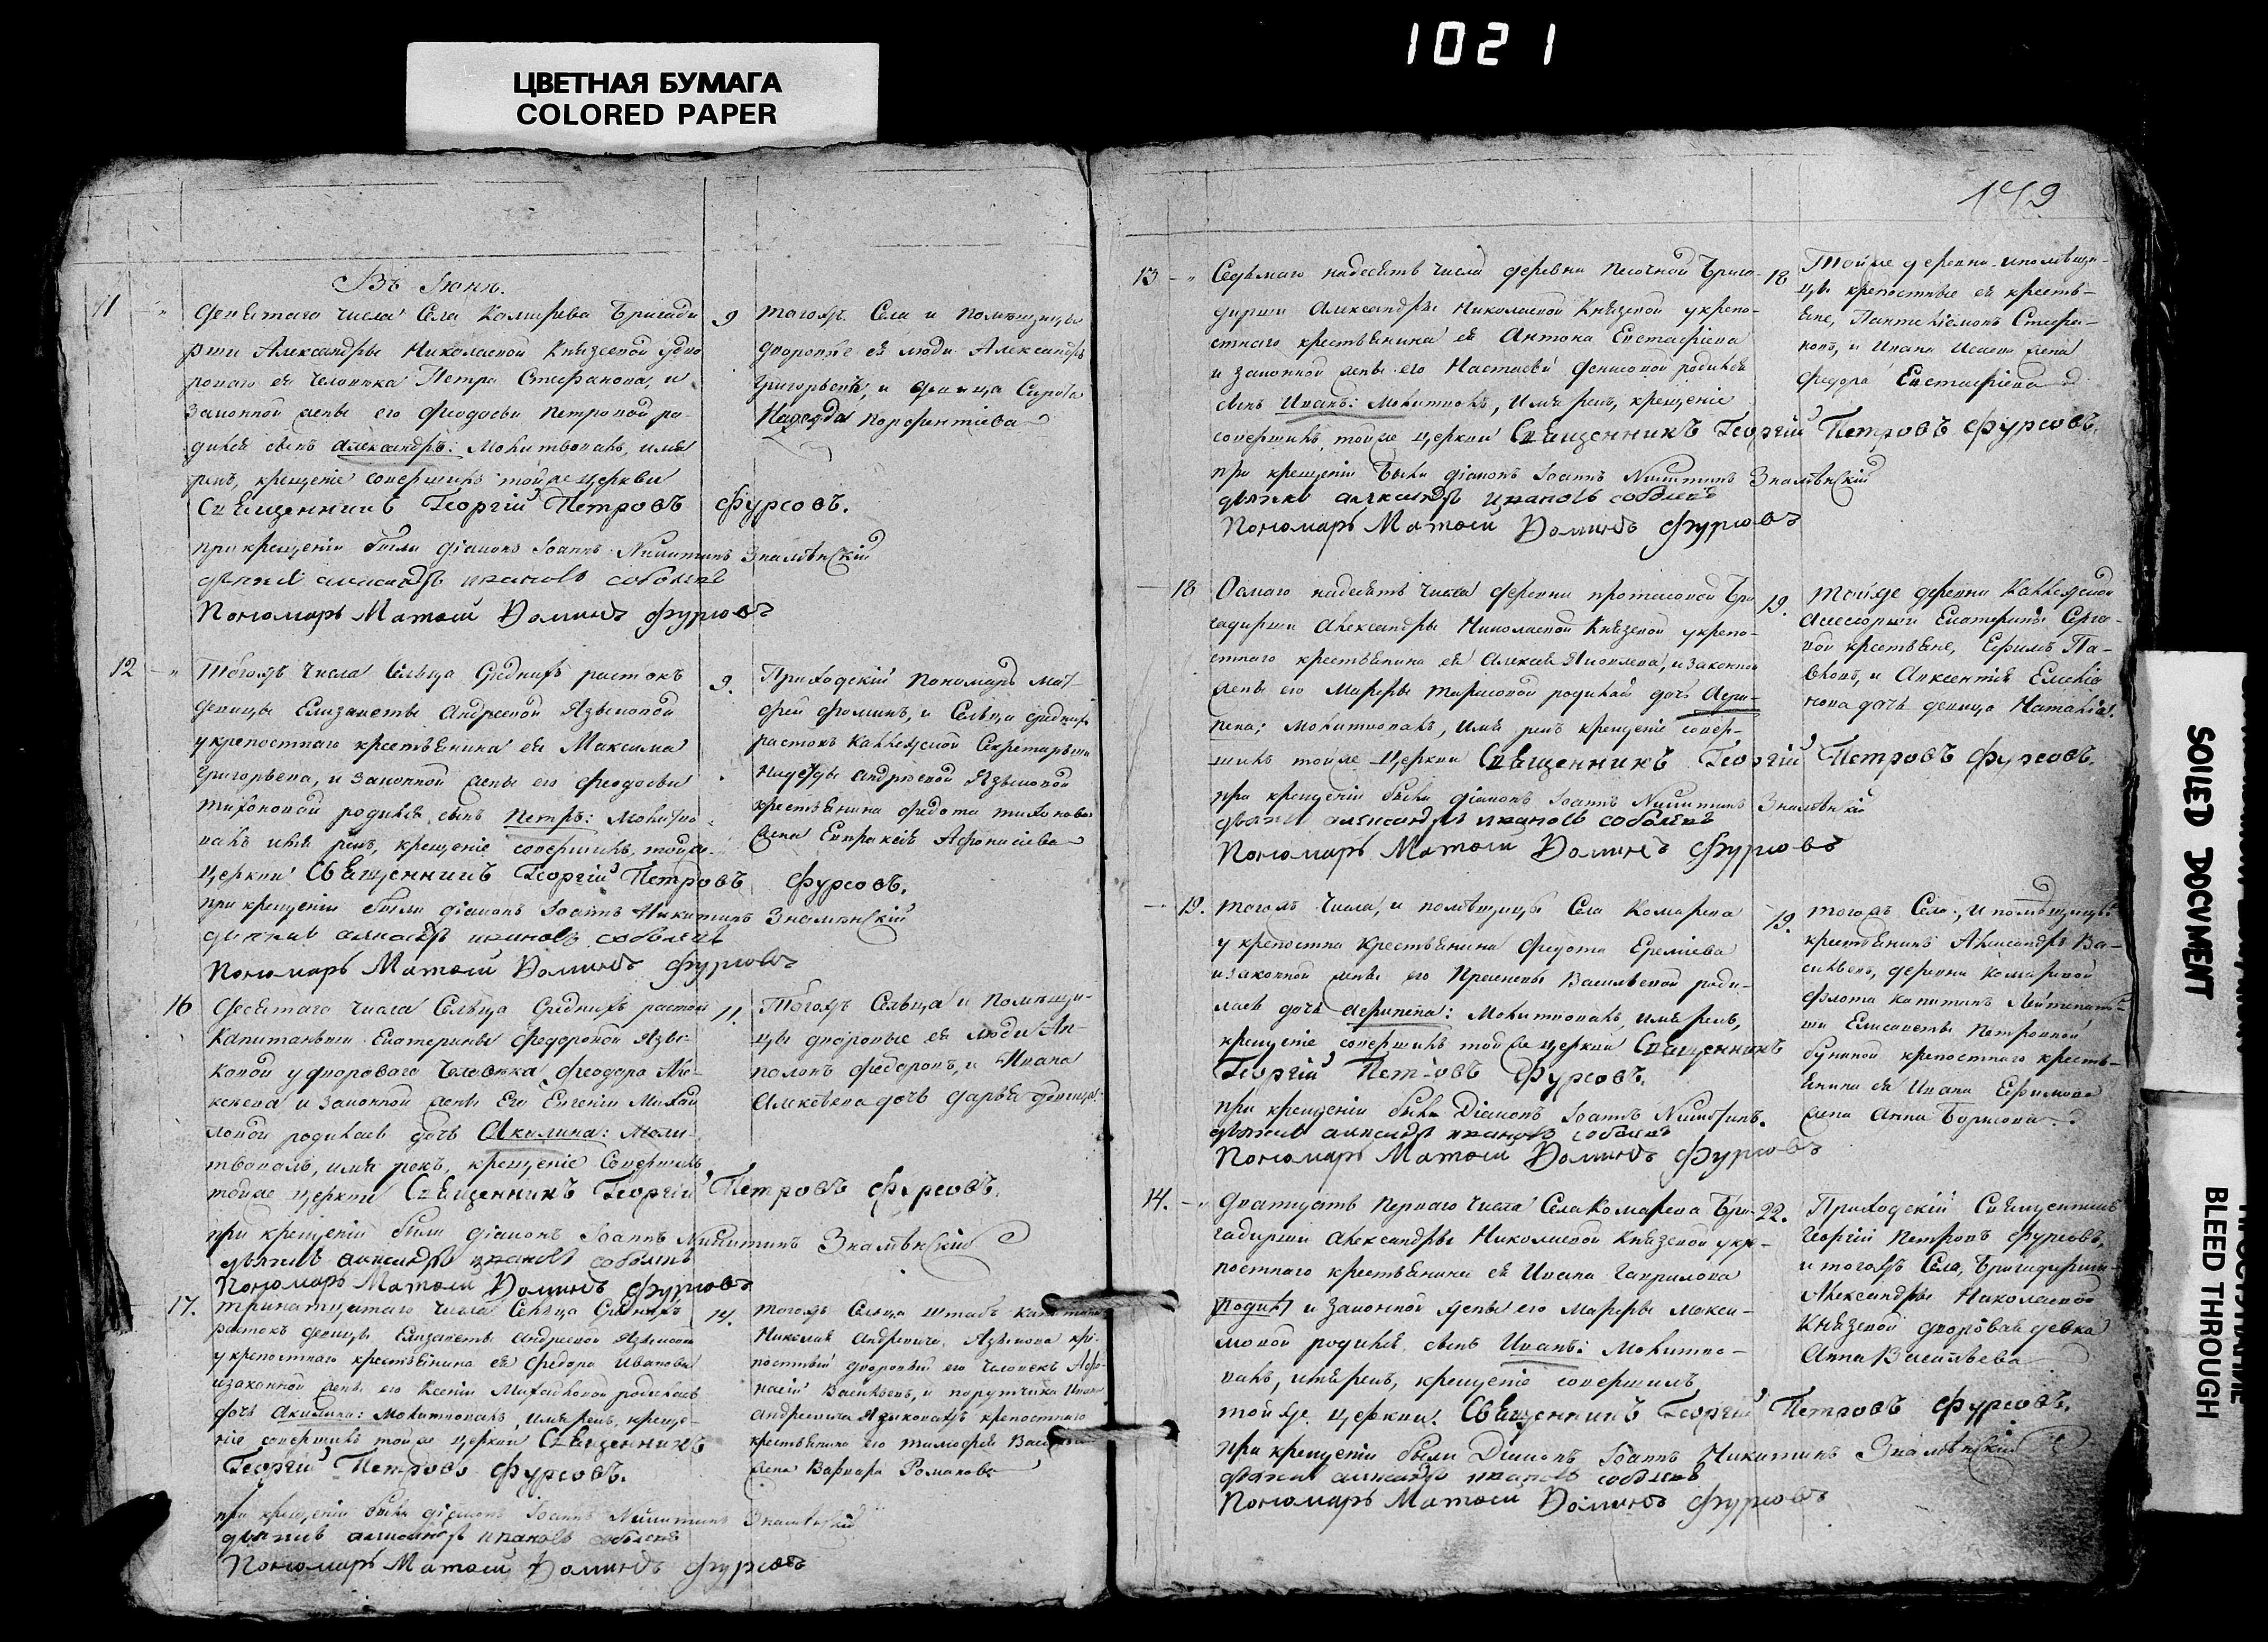 1021
ЦВЕТНАЯ БУМАГА
COLORED PAPER
149
Въ Іюнѣ.
11
девятаго числа Села Комарева Бригади
рши Александры Николаевой Князевой удво
роваго ея человѣка Петра Стефанова, и
законной жены его Феодосьи Петровой ро
дился сынъ Александръ: молитвовалъ, имя
рекъ, крещеніе совершилъ тойже церкви
Священникъ Георгій Петровъ Фурсовъ.
при крещеніи были діаконъ Іоаннъ Никитинъ Знамѣнскій
дьячекъ александръ ивановъ соболевъ
Пономарь Матвей Фоминъ Фурсовъ
9
тогожъ Села и Помѣщицы
дворовые ея люди Александръ
Григорьевъ, и девица Сирота
Надежда Порфентіева
12
Тогожъ числа Сельца Среднихъ растокъ
девицы Елизаветы Андреевой Языковой
укрепостнаго крестьянина ея Максима
Григорьева, и законной жены его Феодосьи
Тихоновой родился сынъ Петръ: молитво
валъ имя рекъ, крещеніе совершилъ тойже
Церкви Священникъ Георгій Петровъ Фурсовъ.
при крещеніи были діаконъ Іоаннъ Никитинъ Знамѣнскій
дьячекъ александръ ивановъ соболевъ
Пономарь Матвей Фоминъ Фурсовъ
9.
Приходскій Пономарь Мат-
фей Фоминъ, и Сельца среднихъ
растокъ Коллежской Секретарьши
Надежды Андреевой Языковой
крестьянина Федота Тихонова
жена Евпраксія Афонасіева
16
Десятаго числа Сельца Среднихъ растокъ
Капитаньши Екатерины Федоровой Язы-
ковой удвороваго Человѣка Феодора
и законной жены Его Евгеніи Михай
ловой родилась дочь Акилина: моли-
твовалъ, имя рекъ, крещеніе Совершилъ
тойже церкви Священникъ Георгій Петровъ Фурсовъ.
при крещеніи были діаконъ Іоаннъ Никитинъ Знамѣнскій
дьячекъ александръ ивановъ соболевъ
Пономарь Матвей Фоминъ Фурсовъ
11.
Тогожъ Сельца и Помѣщи-
цы дворовые ея люди
Федоровъ, и Ивана
Алексѣева дочь Дарья девица.
17.
тринатцатаго числа Сельца Среднихъ
растокъ девицы Елизаветы Андреевой Языковой
укрепостнаго крестьянина ея Федора Иванова
изаконной жены его Ксеніи Михайловой родилась
дочь Акилина: молитвовалъ, имя рекъ, креще-
ніе совершилъ тойже церкви Священникъ
Георгій Петровъ Фурсовъ.
при крещеніи были діаконъ Іоаннъ Никитинъ Знамѣнскій
дьячекъ александръ ивановъ соболевъ
Пономарь Матвей Фоминъ Фурсовъ
14.
тогожъ Сельца штабъ капитана
Николая Андреевича Языкова кре-
постный дворовый его человекъ Афо-
насій Васильевъ, и порутчика Ивана
Андреевича Языковажъ крепостнаго
крестьянина его Тимофея
жена Варвара Романова
13
Седьмаго надесять числа деревни Песочной Брига-
дирши Александры Николаевой Князевой укрепо-
стнаго крестьянина ея Антона Евстафіева
и законной жены его Настасьи Денисовой родился
сынъ Иванъ: молитвовалъ, Имя рекъ, крещеніе
совершилъ тойже церкви Священникъ Георгій Петровъ Фурсовъ.
при крещеніи были діаконъ Іоаннъ Никитинъ Знамѣнскій
дьячекъ александръ ивановъ соболевъ
Пономарь Матвей Фоминъ Фурсовъ
18
Тойже деревни и помѣщи-
цы крепостные ея кресть-
яне, Пантелѣимонъ Стефа-
новъ, и Ивана Исаева жена
Федора Евстафіева
18
Осмаго надесять числа деревни протасовой Бри
гадирши Александры Николаевой Князевой укрепо-
стнаго крестьянина ея Алексея Яковлева, и законной
жены его Марфы Тарасовой родилась дочь Агри-
пена; молитвовалъ, имя рекъ крещеніе совер-
шилъ тойже Церкви Священникъ Георгій Петровъ Фурсовъ.
при крещеніи были діаконъ Іоаннъ Никитинъ Знамѣнскій
дьячекъ александръ ивановъ соболевъ
Пономарь Матвей Фоминъ Фурсовъ
19.
Тойже деревни Коллежской
Асессорши Екатерины Серге-
вой крестьяне, Ефимъ Па-
вловъ, и Авксентія Емелья
нова дочь девица Наталья.
19.
тогожъ Числа, и помѣщицы Села Комарева
укрепостна крестьянина Федота Еремѣева
изаконной жены его Прасковьи Васильевой роди-
лась дочь Агрипена: молитвовалъ, имя рекъ,
крещеніе совершилъ тойже церкви Священникъ
Георгій Петровъ Фурсовъ.
при крещеніи были Діаконъ Іоаннъ Никитинъ.
дьячекъ александръ ивановъ соболевъ
Пономарь Матвей Фоминъ Фурсовъ
19.
тогожъ Села, и помѣщицы
крестьянинъ Александръ Ва-
сильевъ, деревни Комаревой
флота капитанъ Лейтенант-
ши Елисаветы Петровной
Буниной крепостнаго кресть-
янина ея Ивана Ефимова
жена Анна Борисова.
14.
Дватцать Перваго числа Села Комарева Бри-
гадирши Александры Николаевой Князевой укре-
постнаго крестьянина ея Ивана Гаврилова
родил и законной жены его Марфы Макси-
мовой родился сынъ Иванъ: молитво-
валъ, имярекъ, крещеніе совершилъ
тойже церкви. Священникъ Георгій Петровъ Фурсовъ.
при крещеніи были Діаконъ Іоаннъ Никитинъ Знамѣнскій
дьячекъ александръ ивановъ соболевъ
Пономарь Матвей Фоминъ Фурсовъ
22.
Приходскій Священникъ
Георгій Петровъ Фурсовъ,
и тогожъ Села, Бригадирши
Александры Николаевой
Князевой дворовая девка
Анна Васильева
SOILED DOCUMENT
BLEED THROUGH